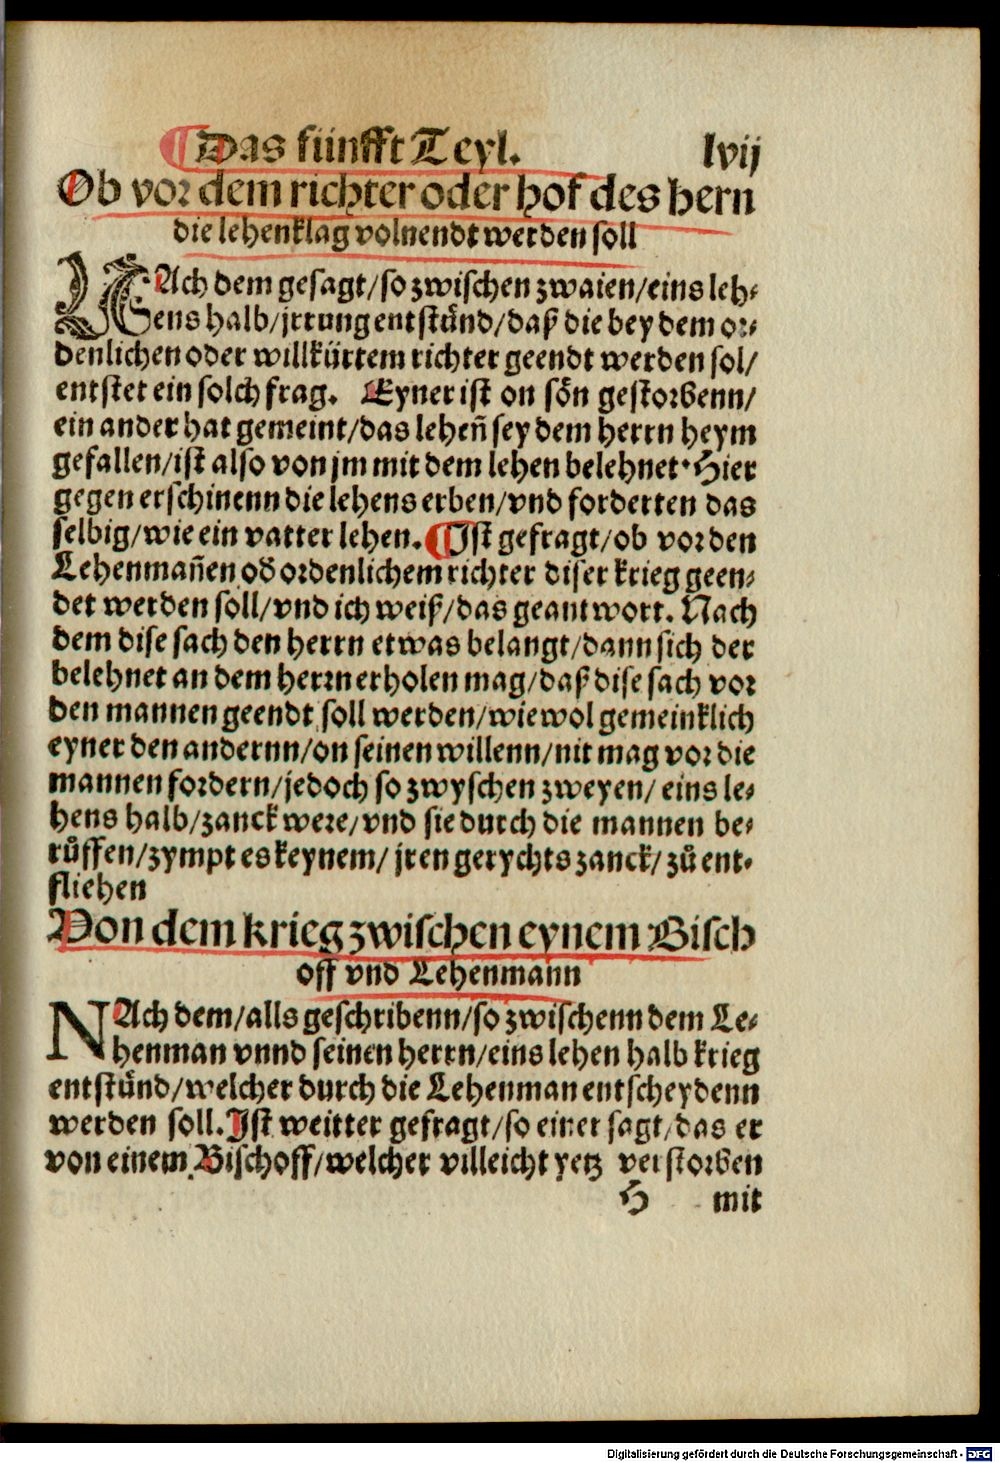 ¶Das fünfft Teyl. lvij
Ob vor dem richter oder hof des hern
die lehenklag volnendt werden soll
NAch dem gesagt/so zwischen zwaien/eins leh⸗
ens halb/jrrung entstünd/daß die bey dem or⸗
denlichen oder willkürtem richter geendt werden sol/
entstet ein solch frag. Eyner ist on sön gestorbenn/
ein ander hat gemeint/das leheñ sey dem herrn heym
gefallen/ist also von jm mit dem lehen belehnet. Hier
gegen erschinenn die lehens erben/vnd forderten das
selbig/wie ein vatter lehen. ¶Ist gefragt/ob vor den
Lehenmañen od̕ ordenlichem richter diser krieg geen⸗
det werden soll/vnd ich weiß/das geantwort. Nach
dem dise sach den herrn etwas belangt/dann sich der
belehnet an dem herrn erholen mag/daß dise sach vor
den mannen geendt soll werden/wiewol gemeinklich
eyner den andernn/on seinen willenn/nit mag vor die
mannen fordern/jedoch so zwyschen zweyen/ eins le⸗
hens halb/zanck were/vnd sie durch die mannen be⸗
růffen/zympt es keynem/ jren gerychts zanck/ zů ent⸗
fliehen
Von dem krieg zwischen eynem Bisch
off vnd Lehenmann
NAch dem/alls geschribenn/so zwischenn dem Le⸗
henman vnnd seinen herrn/eins lehen halb krieg
entstünd/welcher durch die Lehenman entscheydenn
werden soll. Ist weitter gefragt/so einer sagt/das er
von einem Bischoff/welcher villeicht yetz verstorben
H mit
Digitalisierung gefördert durch die Deutsche Forschungsgemeinschaft - DFG